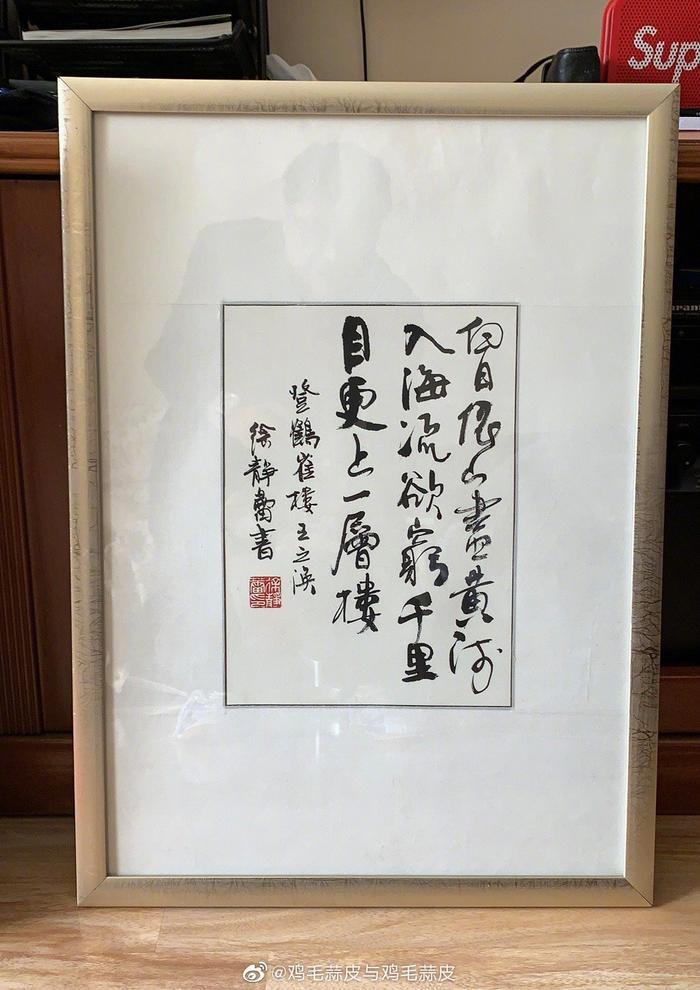 白日依山盡黃河
入海流欲窮千里
目更上一層樓
登鶴崔樓王之渙
徐靜蕾書
徐靜蕾印
Sup
@鸡毛蒜皮与鸡毛蒜皮